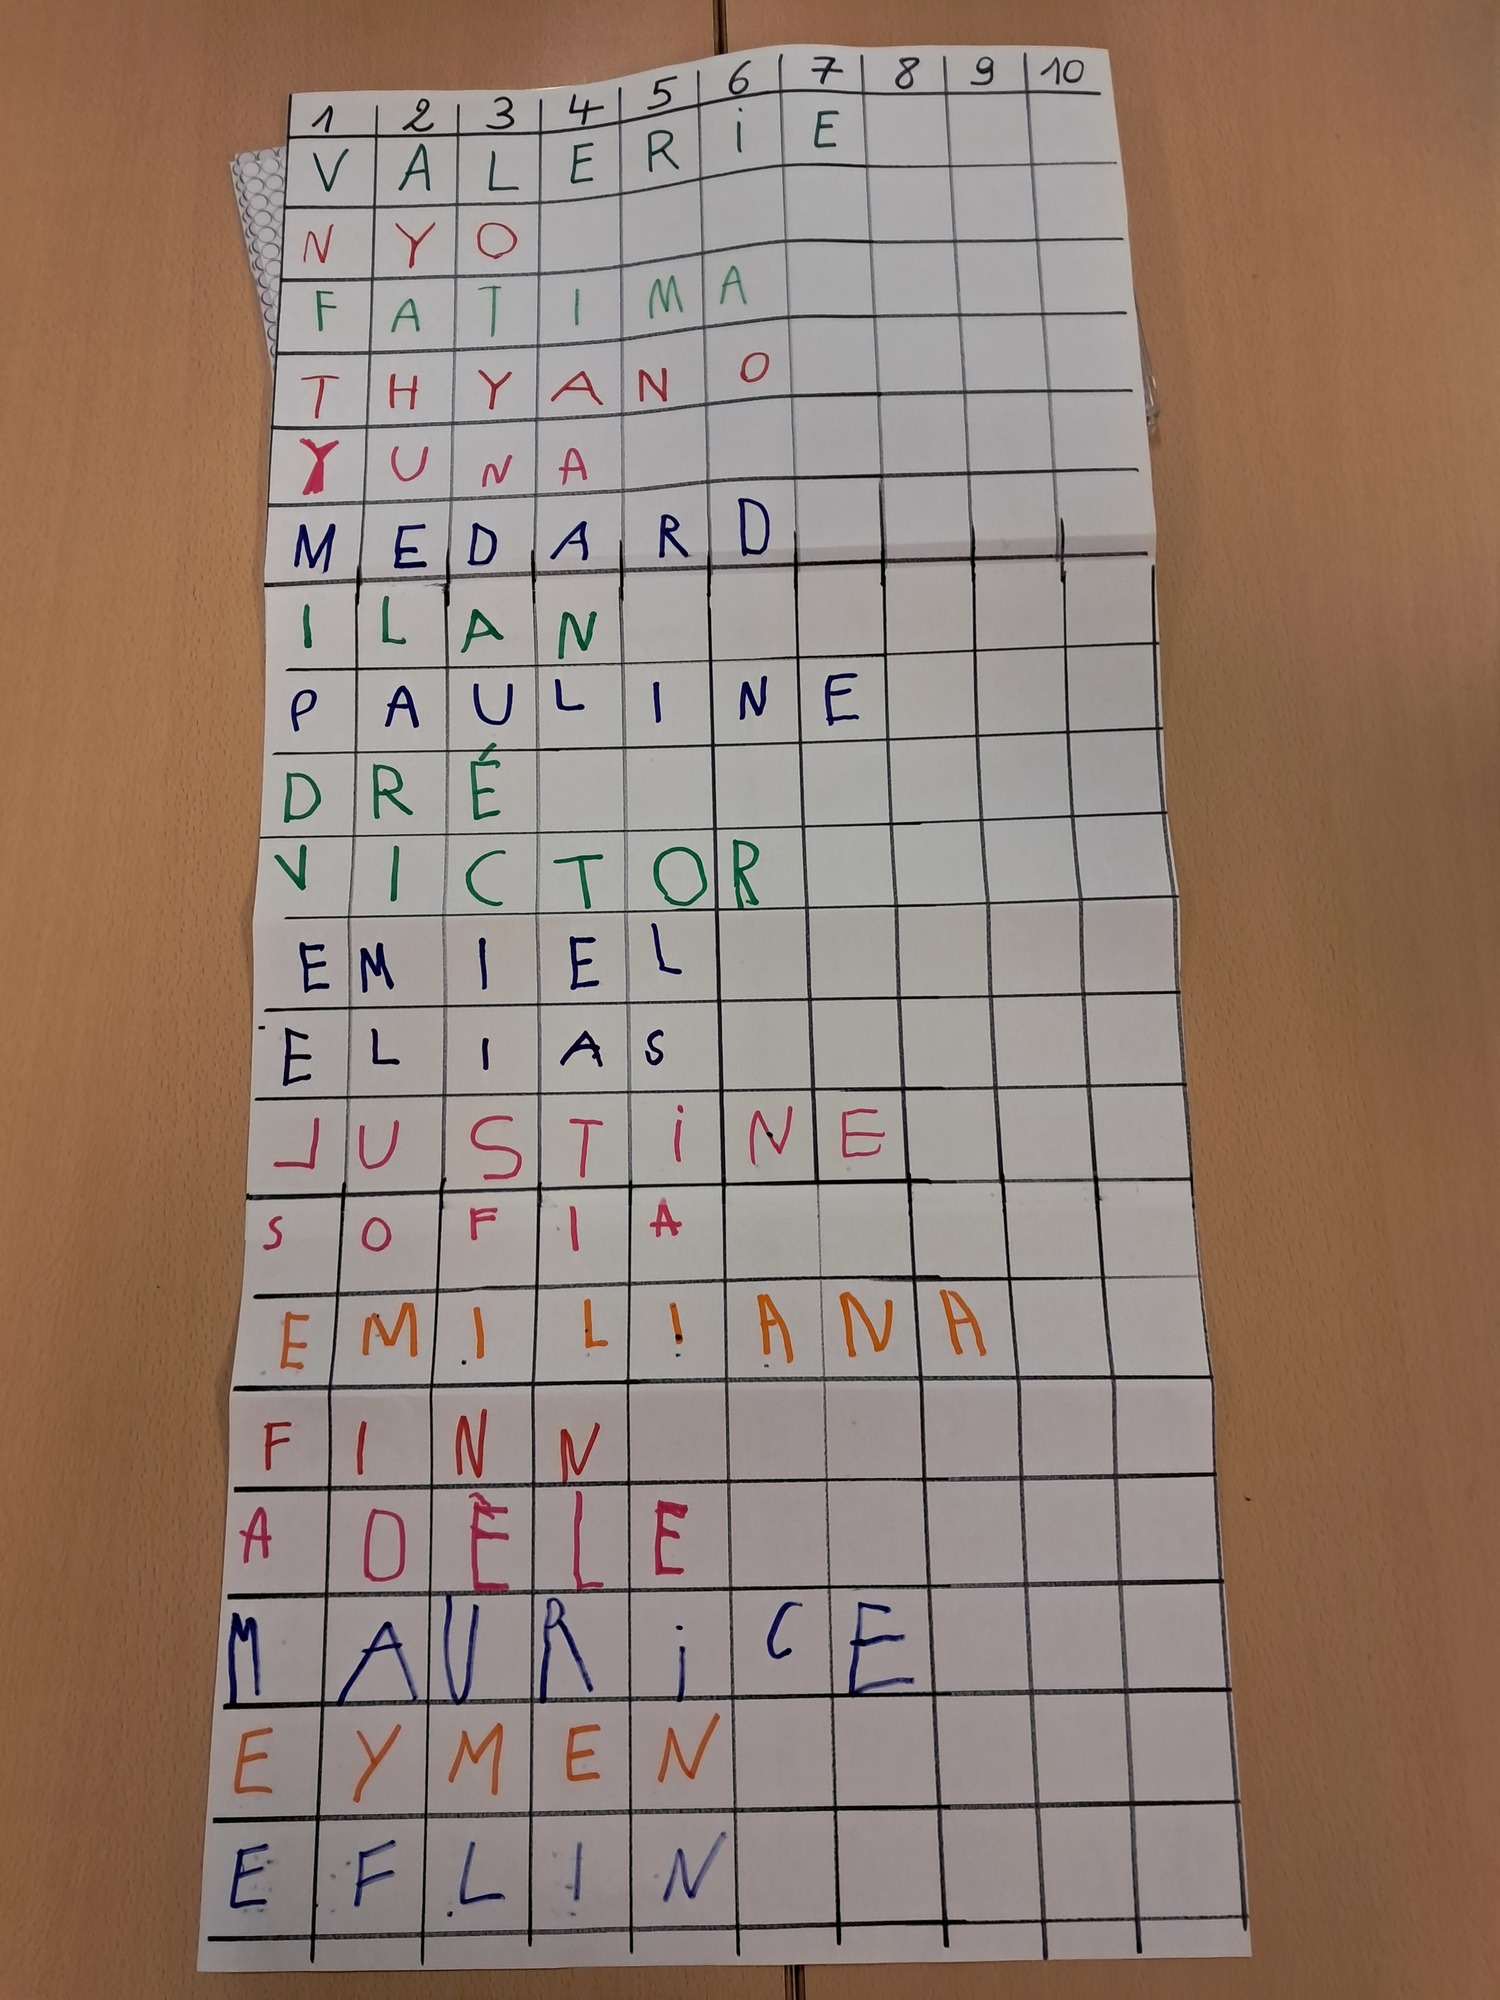 1 2 3 4 5 6 7 8 9 10
V A L E R i E
N Y O
F A T I M A
T H Y A N O
Y U N A
M E D A R D
I L A N
P A U L I N E
D R É
V I C T O R
E M I E L
E L I A S
J U S T i N E
S O F I A
E M I L I A N A
F I N N
A D È L E
M A U R i C E
E Y M E N
E F L I N